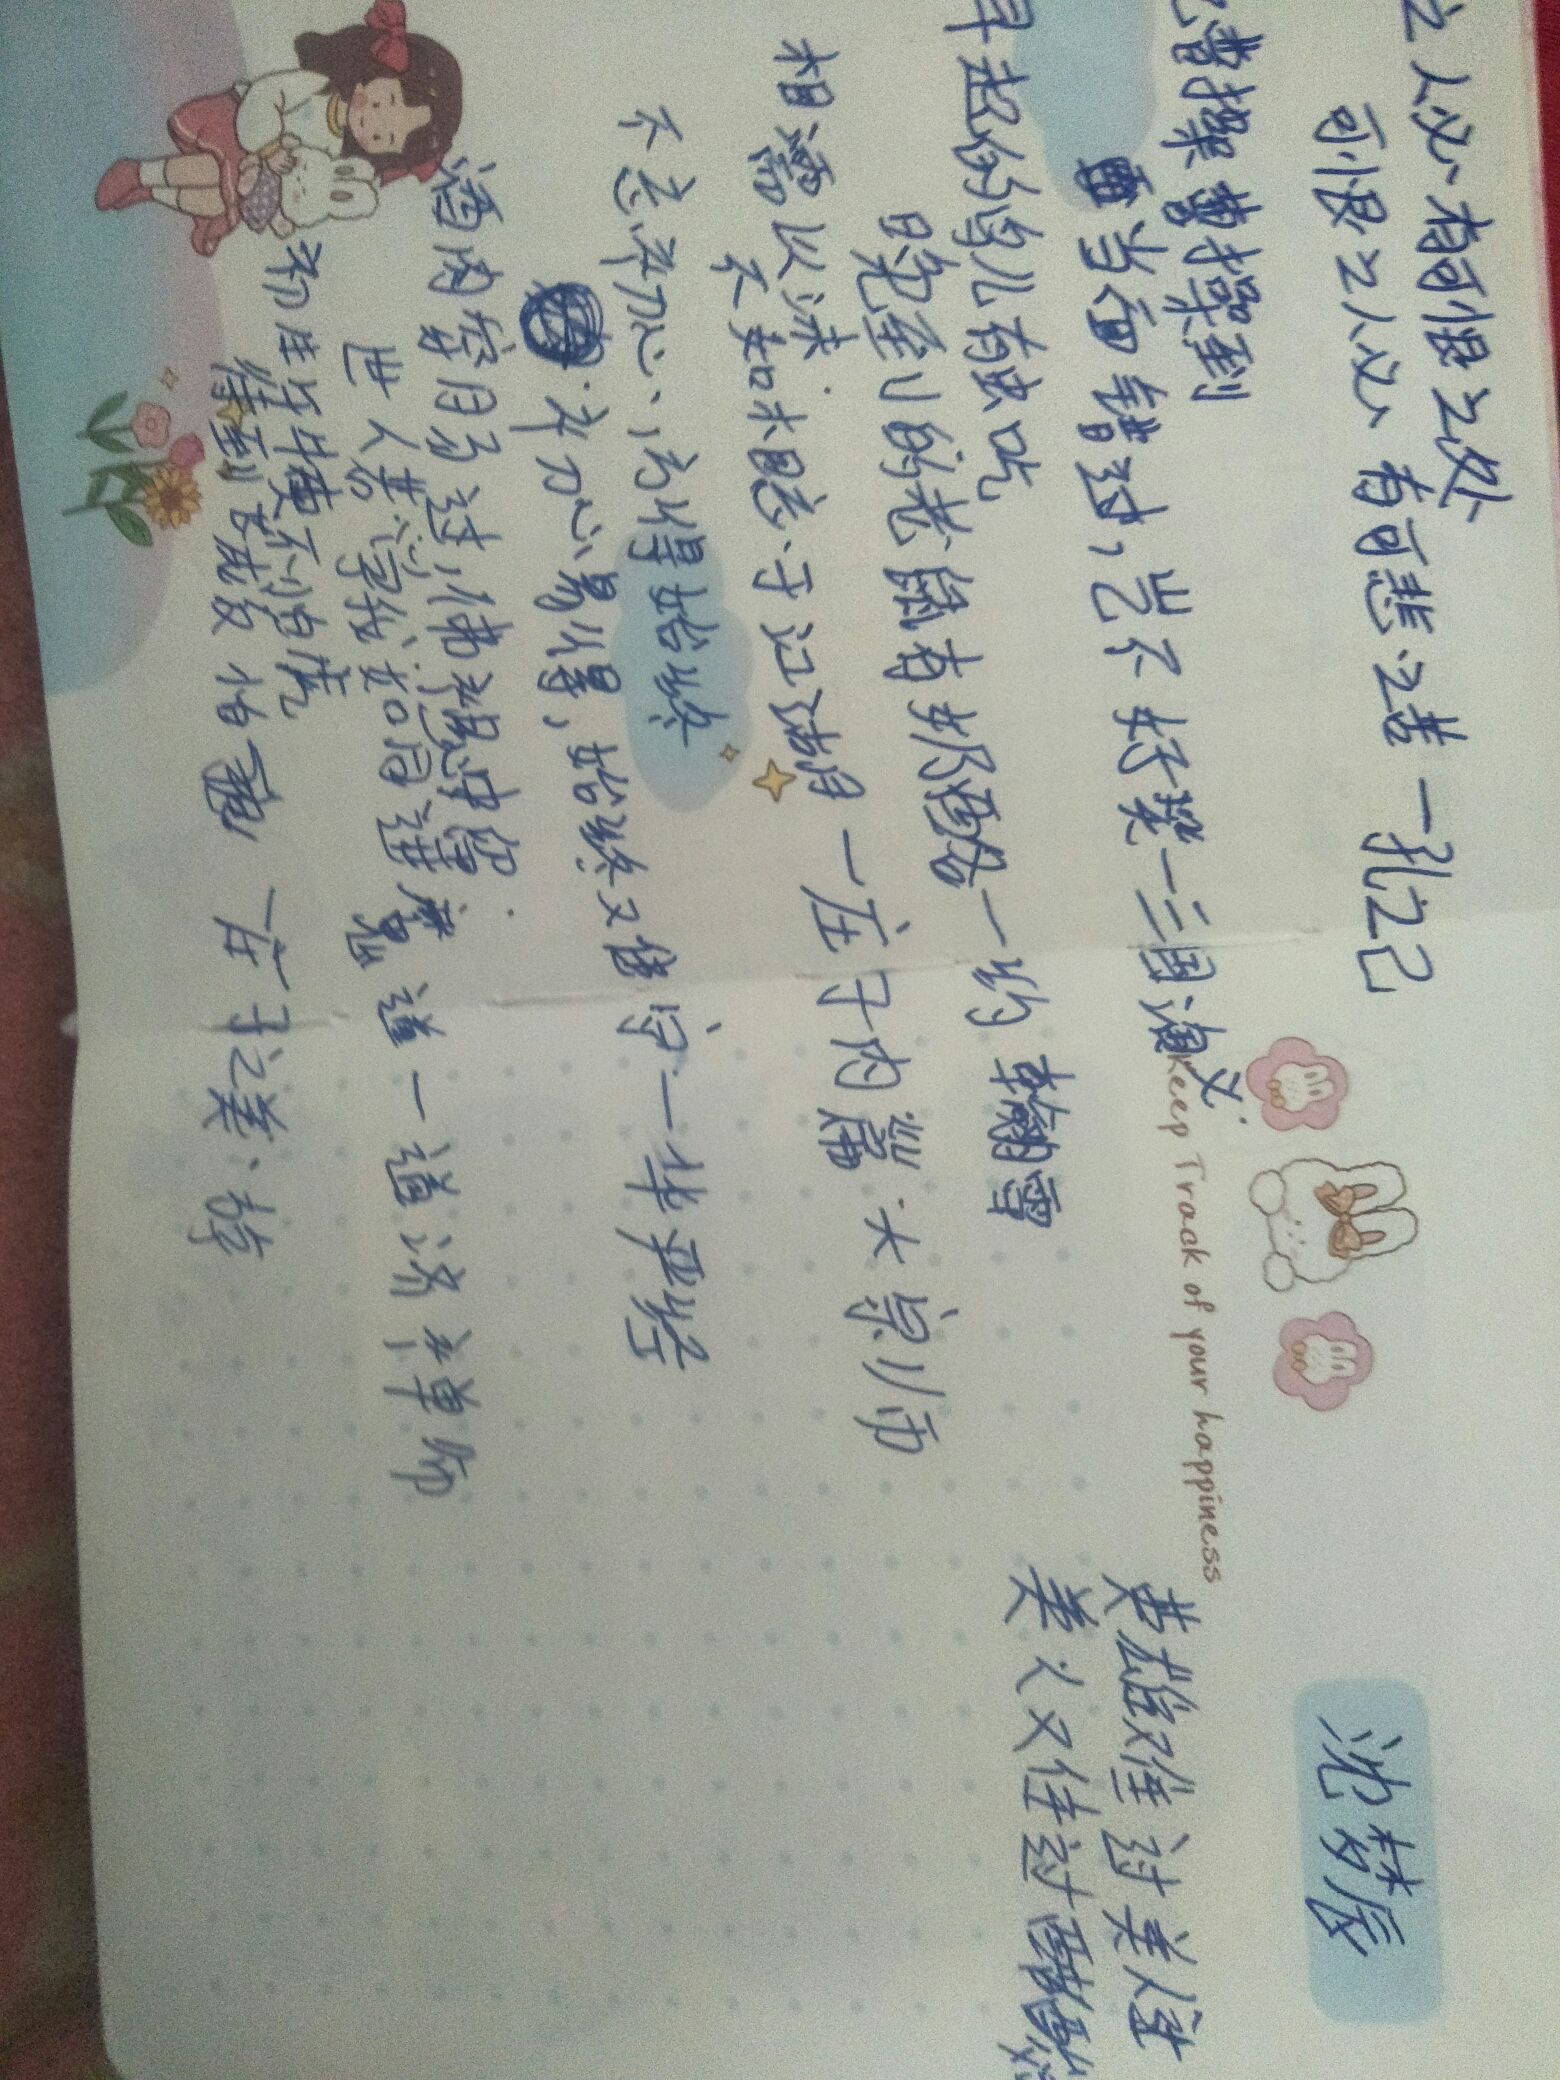 之人必有可恨之处
可恨之人必有可悲之苦 一孔乙己
曹操曹操到
当面错过,岂不好笑一三国演义
早起的鸟儿有虫吃
晚到的老鼠有奶酪 一约翰雪
相濡以沫
不如相忘于江湖 一庄子内篇·大宗师
不忘初心,方得始终
初心易得,始终又难守一华严经
酒肉穿肠过,佛祖心中留
世人若学我 如同进魔道 一道济禅师
初生牛犊不怕虎
Keep Track of your happiness
沈梦辰
英雄难过美人